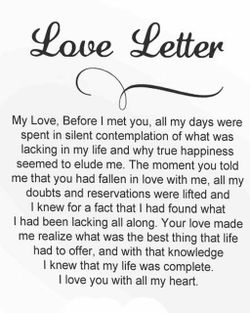 Love Letter
My Love, Before I met you, all my days were
spent in silent contemplation of what was
lacking in my life and why true happiness
seemed to elude me. The moment you told
me that you had fallen in love with me, all my
doubts and reservations were lifted and
I knew for a fact that I had found what
I had been lacking all along. Your love made
me realize what was the best thing that life
had to offer, and with that knowledge
I knew that my life was complete.
I love you with all my heart.